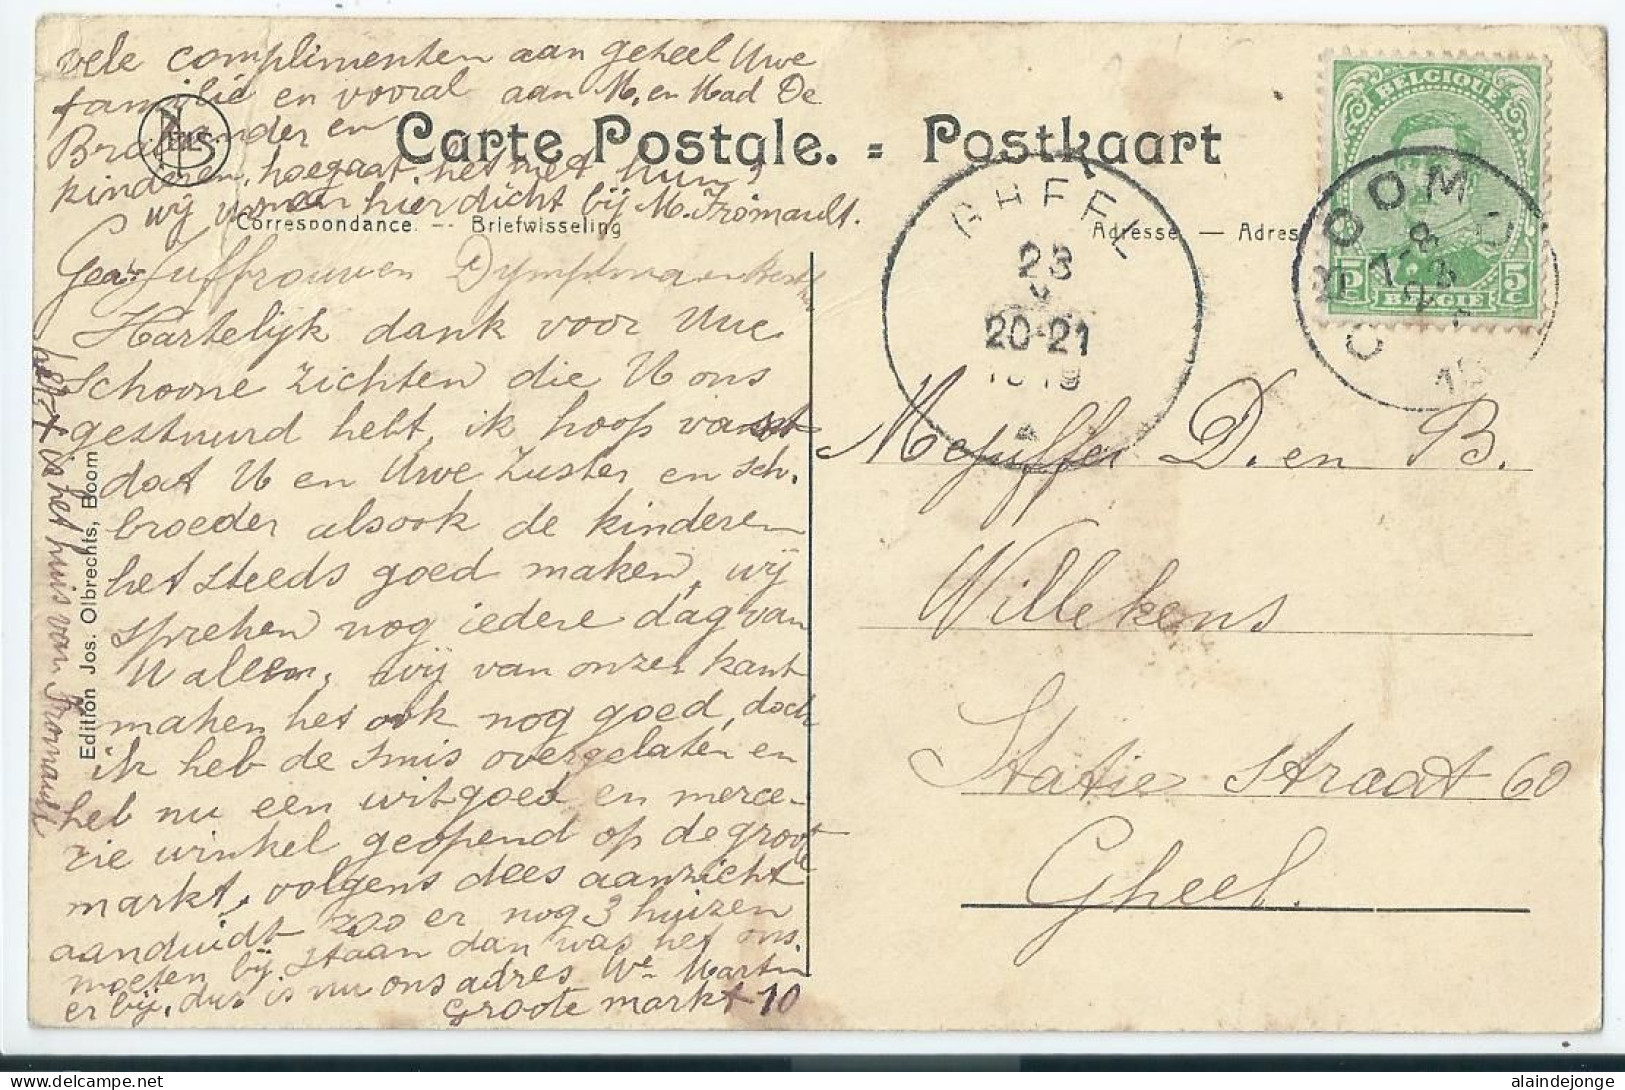 vele complimenten aan geheel Uwe
familie en vooral aan M. en Mad De
Brabander en
kinderen, hoegaat het met hun,
wij wonen hierdicht bij M. Fromault.
NELS
Carte Postale. = Postkaart
Correspondance. -- Briefwisseling
Adresse. — Adres
Geale Juffrouwen Dymphna en Bertha
Hartelijk dank voor Uwe
schoone zichten die U ons
gestuurd hebt, ik hoop vast
dat U en Uwe Zuster en sch.
broeder alsook de kinderen
het steeds goed maken, wij
spreken nog iedere dag van
Ualeen, wij van onzer kant
maken het ook nog goed, doch
ik heb de smis overgelaten en
heb nu een witgoed en merce-
rie winkel geopend op de groote
markt, volgens dees aanzicht
aanduidt zoo er nog 3 huizen
moeten bij staan dan was het ons
er bij, dus is nu ons adres We Martin
Groote markt 10
het + is het huis van Fromault
Edition Jos. Olbrechts, Boom
GHEEL
23
20-21
1919
BELGIQUE
5c
BELGIE
BOOM
7-8
23
19
Mejuffer D. en B.
Willekens
Statie straat 60
Gheel.
alaindejonge